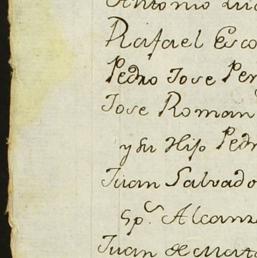 Antonio Lu
Rafael Esco
Pedro Jose Per
Jose Roman
y su Hijo Pedr
Juan Salvado
Gp.<sup>e</sup> Alcanz
Juan de Mata